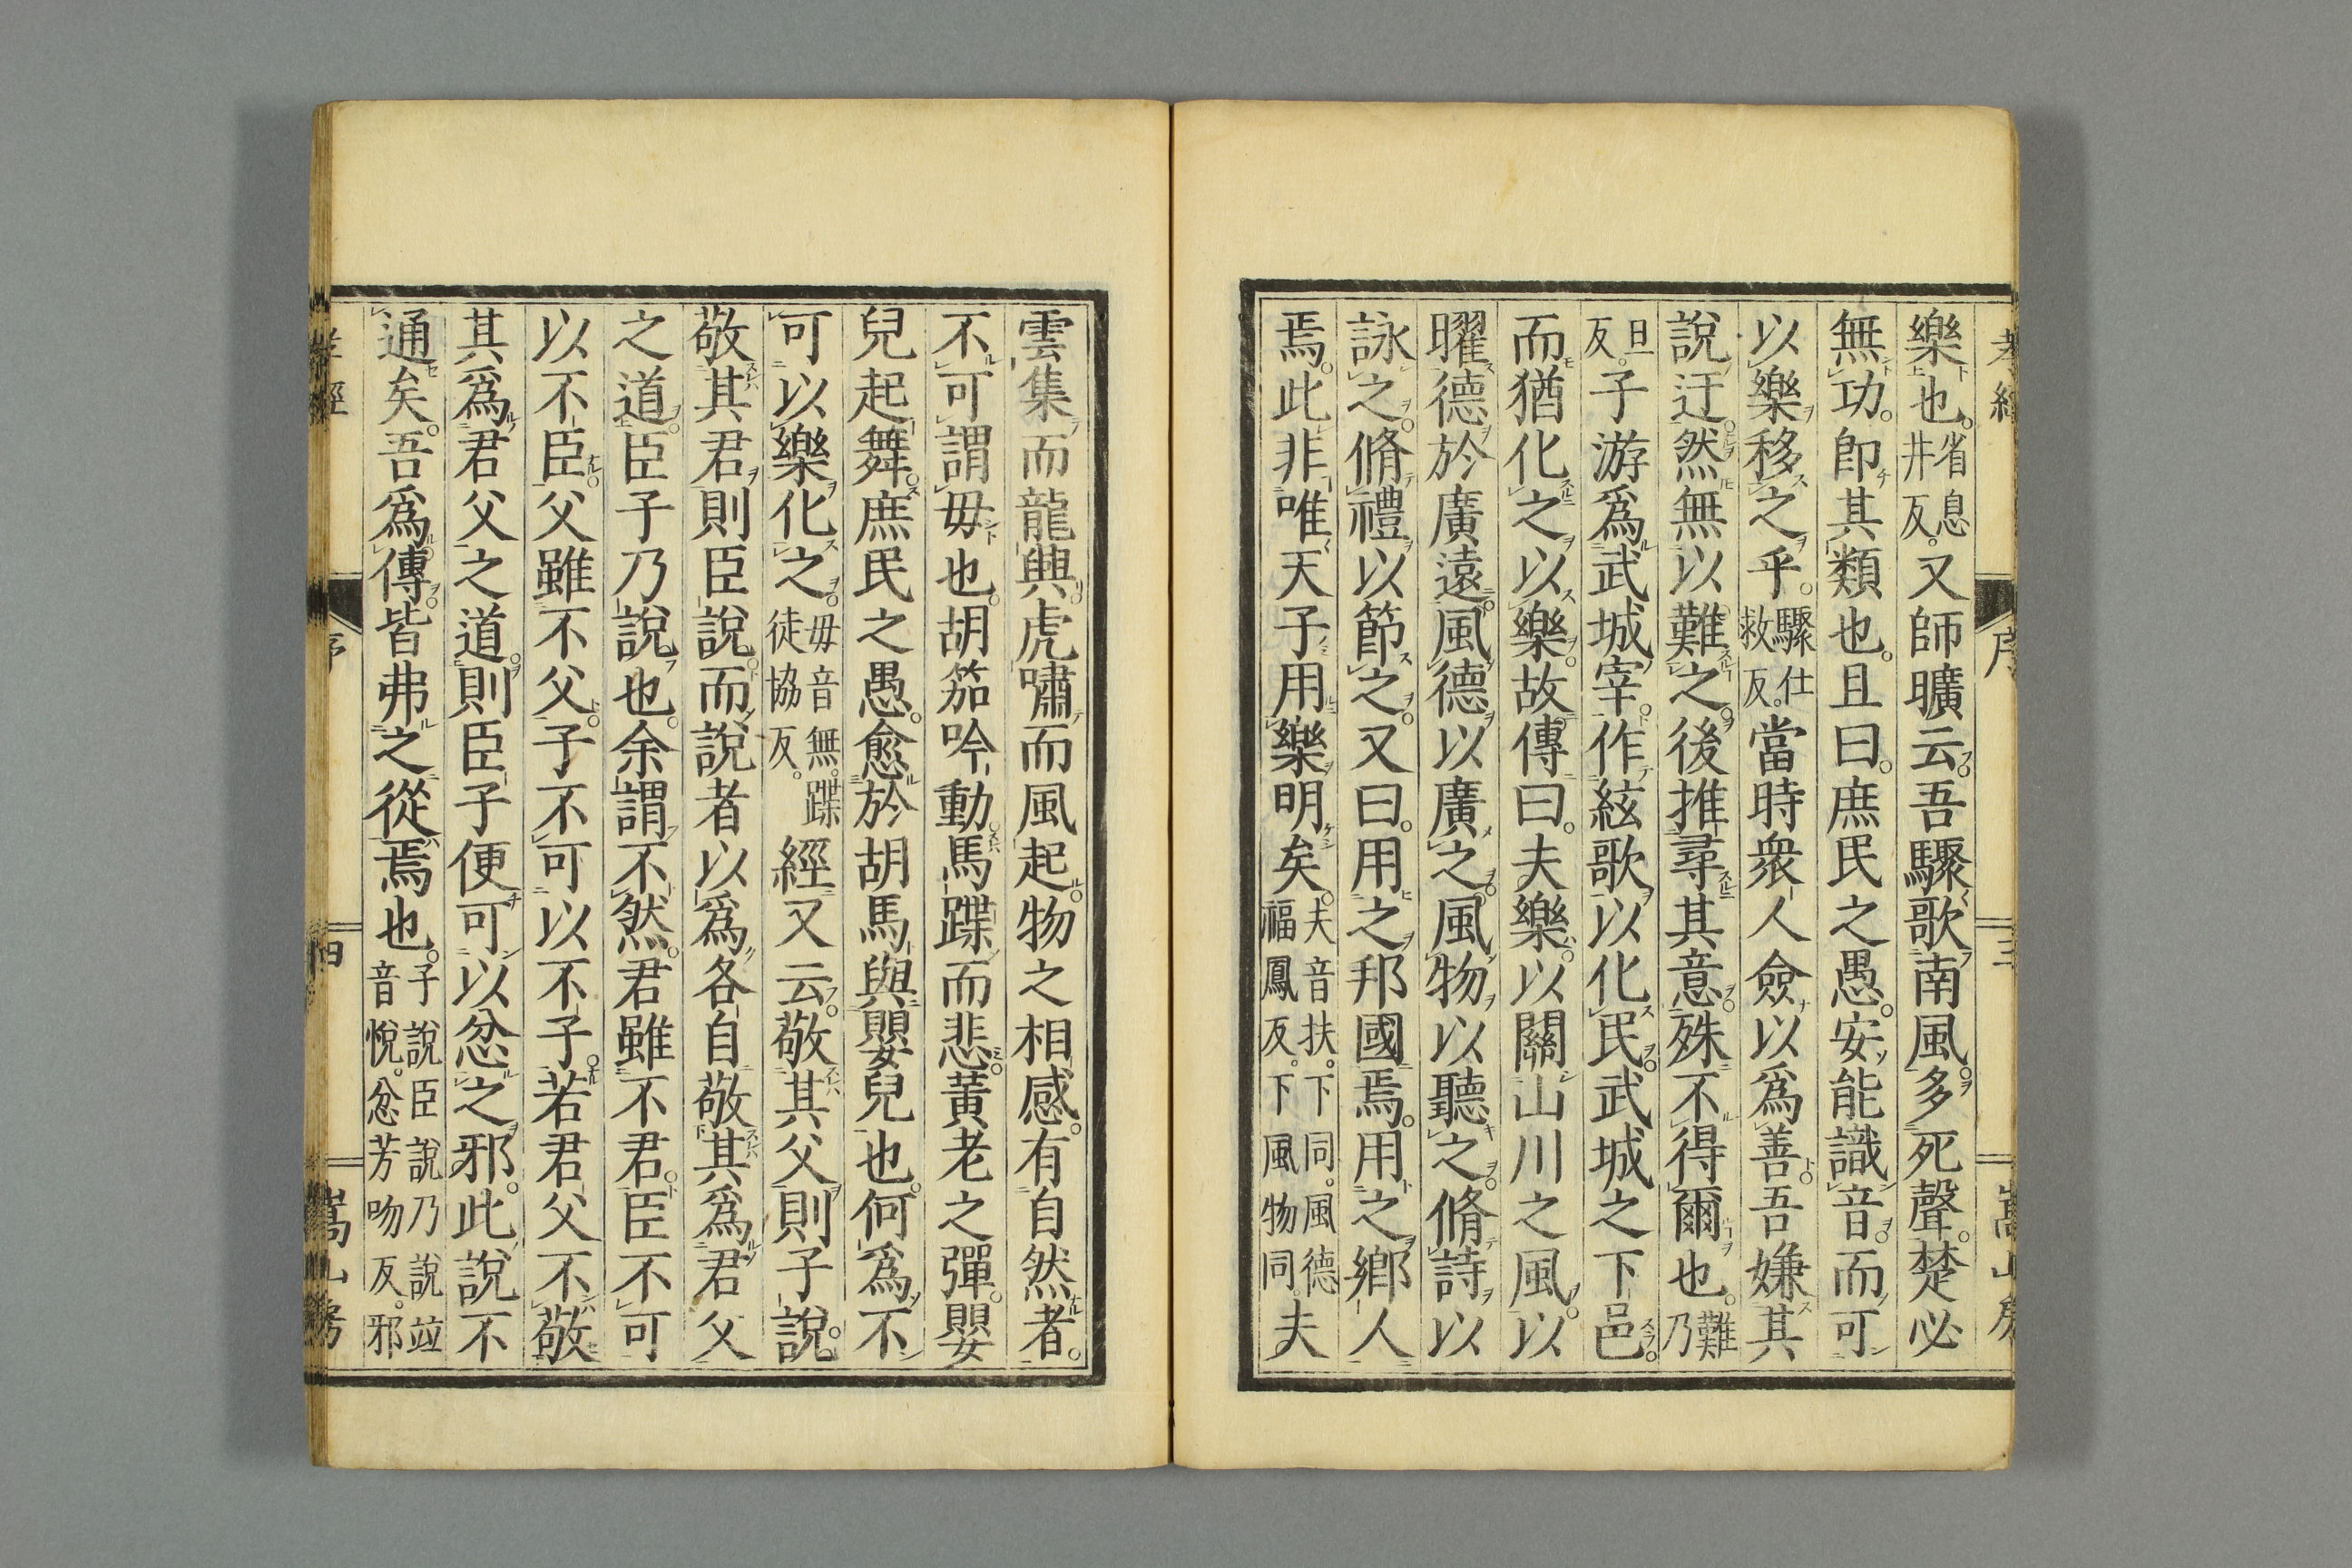 樂也。省息井反。又師曠云吾驟歌南風。多死聲。楚必
無功。即其類也。且曰。庶民之愚。安能識音。而可
以樂移之乎。驟仕救反。當時衆人僉以爲善。吾嫌其
說迂然無以難之。後推尋其意。殊不得爾也。難乃
旦反。子游爲武城宰。作絃歌以化民。武城之下邑
而猶化之以樂。故傳曰。夫樂。以關山川之風。以
曜德於廣遠。風德以廣之。風物以聽之。脩詩以
詠之。脩禮以節之。又曰。用之邦國焉。用之鄉人
焉。此非唯天子用樂明矣。夫音扶。下同。風德福鳳反。下風物同。夫
孝經
序
三
嵩山房
雲集而龍興。虎嘯而風起。物之相感。有自然者。
不可謂毋也。胡笳吟動。馬蹀而悲。黃老之彈。嬰
兒起舞。庶民之愚。愈於胡馬與嬰兒也。何爲不
可以樂化之。毋音無。蹀徒協反。經又云。敬其父則子說。
敬其君則臣說。而說者以爲各自敬其爲君父
之道。臣子乃說也。余謂不然。君雖不君。臣不可
以不臣。父雖不父。子不可以不子。若君父不敬
其爲君父之道。則臣子便可以忿之邪。此說不
通矣。吾爲傳。皆弗之從焉也。子說臣說乃說說竝音悅。忿芳吻反。邪
孝經
序
四
嵩山房